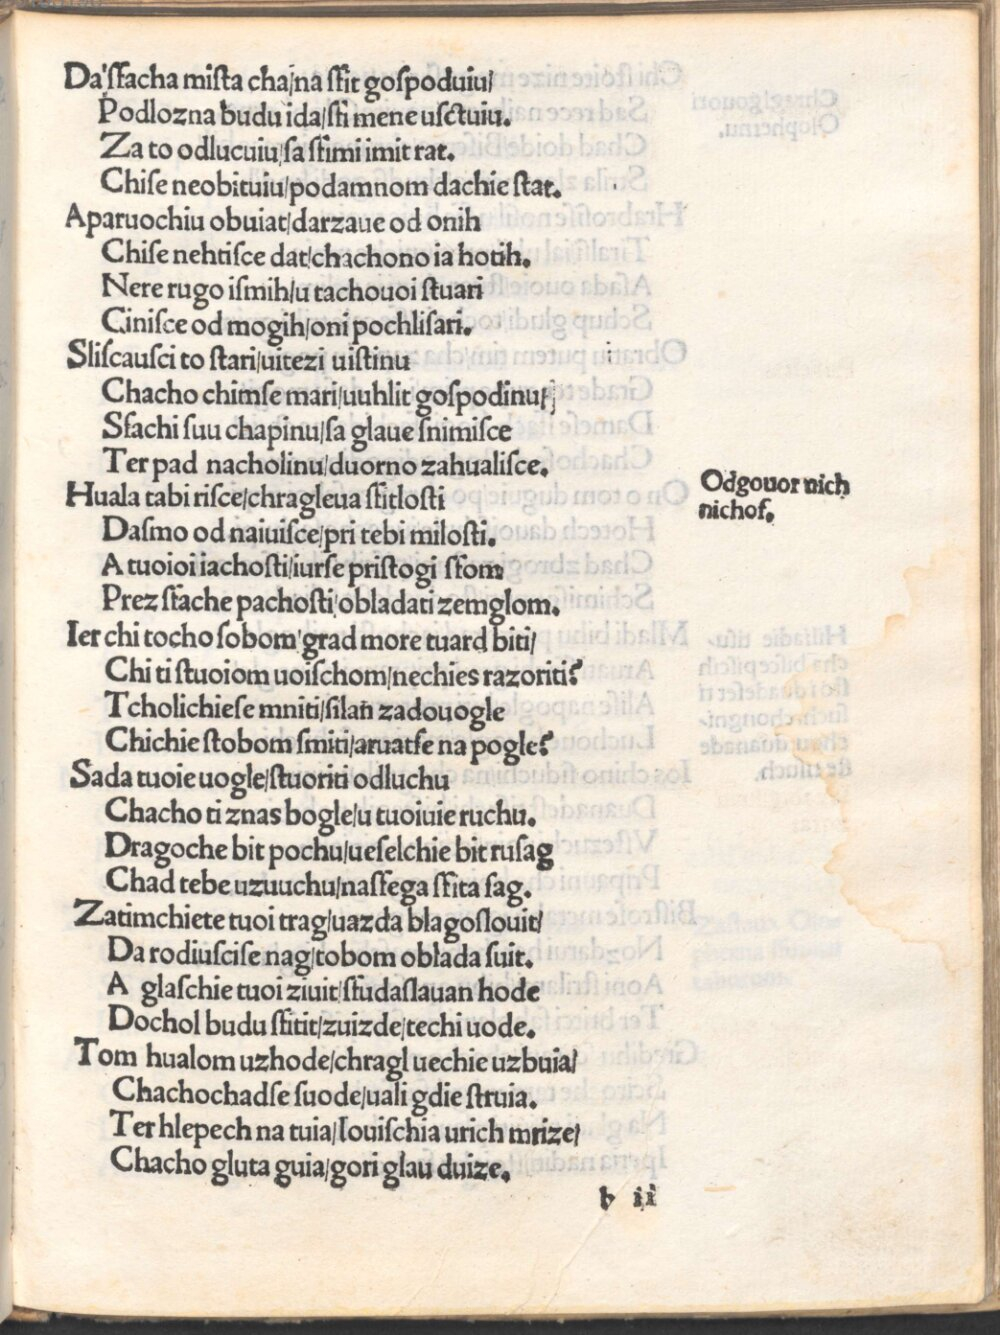 Da'sfacha mista cha/na sfit gospoduiu/
Podlozna budu ida/sfi mene usctuiu.
Za to odlucuiu/sa sfimi imit rat.
Chise neobituiu/podamnom dachie stat.
Aparuochiu obuiat/darzaue od onih
Chise nehtisce dat/chachono ia hotih.
Nere rugo ismih/u tachouoi stuari
Cinisce od mogih/oni pochlisari.
Sliscausci to stari/uitezi uistinu
Chacho chimse mari/uuhlit gospodinu/
Sfachi suu chapinu/sa glaue snimisce
Ter pad nacholinu/duorno zahualisce.
Huala tabi risce/chragleua sfitlosti
Odgouor nich
nichof.
Dasmo od naiuisce/pri tebi milosti.
A tuoioi iachosti/iurse pristogi sfom
Prez sfache pachosti/obladati zemglom.
Ier chi tocho sobom/grad more tuard biti/
Chi ti stuoiom uoischom/nechies razoriti?
Tcholichiese mniti/silan zadouogle
Chichie stobom smiti/aruatse na pogle?
Sada tuoie uogle/stuoriti odluchu
Chacho ti znas bogle/u tuoiuie ruchu.
Dragoche bit pochu/ueselchie bit rusag
Chad tebe uzuuchu/nasfega sfita sag.
Zatimchiete tuoi trag/uazda blagoslouit/
Da rodiuscise nag/tobom oblada suit.
A glaschie tuoi ziuit/sfudaslauan hode
Dochol budu sfitit/zuizde/techi uode.
Tom hualom uzhode/chragl uechie uzbuia/
Chachochadse suode/uali gdie struia.
Ter hlepech na tuia/louischia urich mrize/
Chacho gluta guia/gori glau duize.
b ii